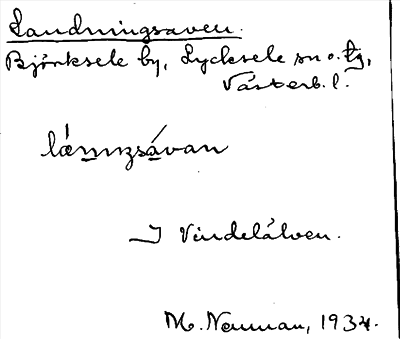 Landningsaven.
Björksele by, Lycksele sn o. tg,
Västerb. l.
lánnıŋsávan
I Vindelälven.
M. Neuman, 1934.